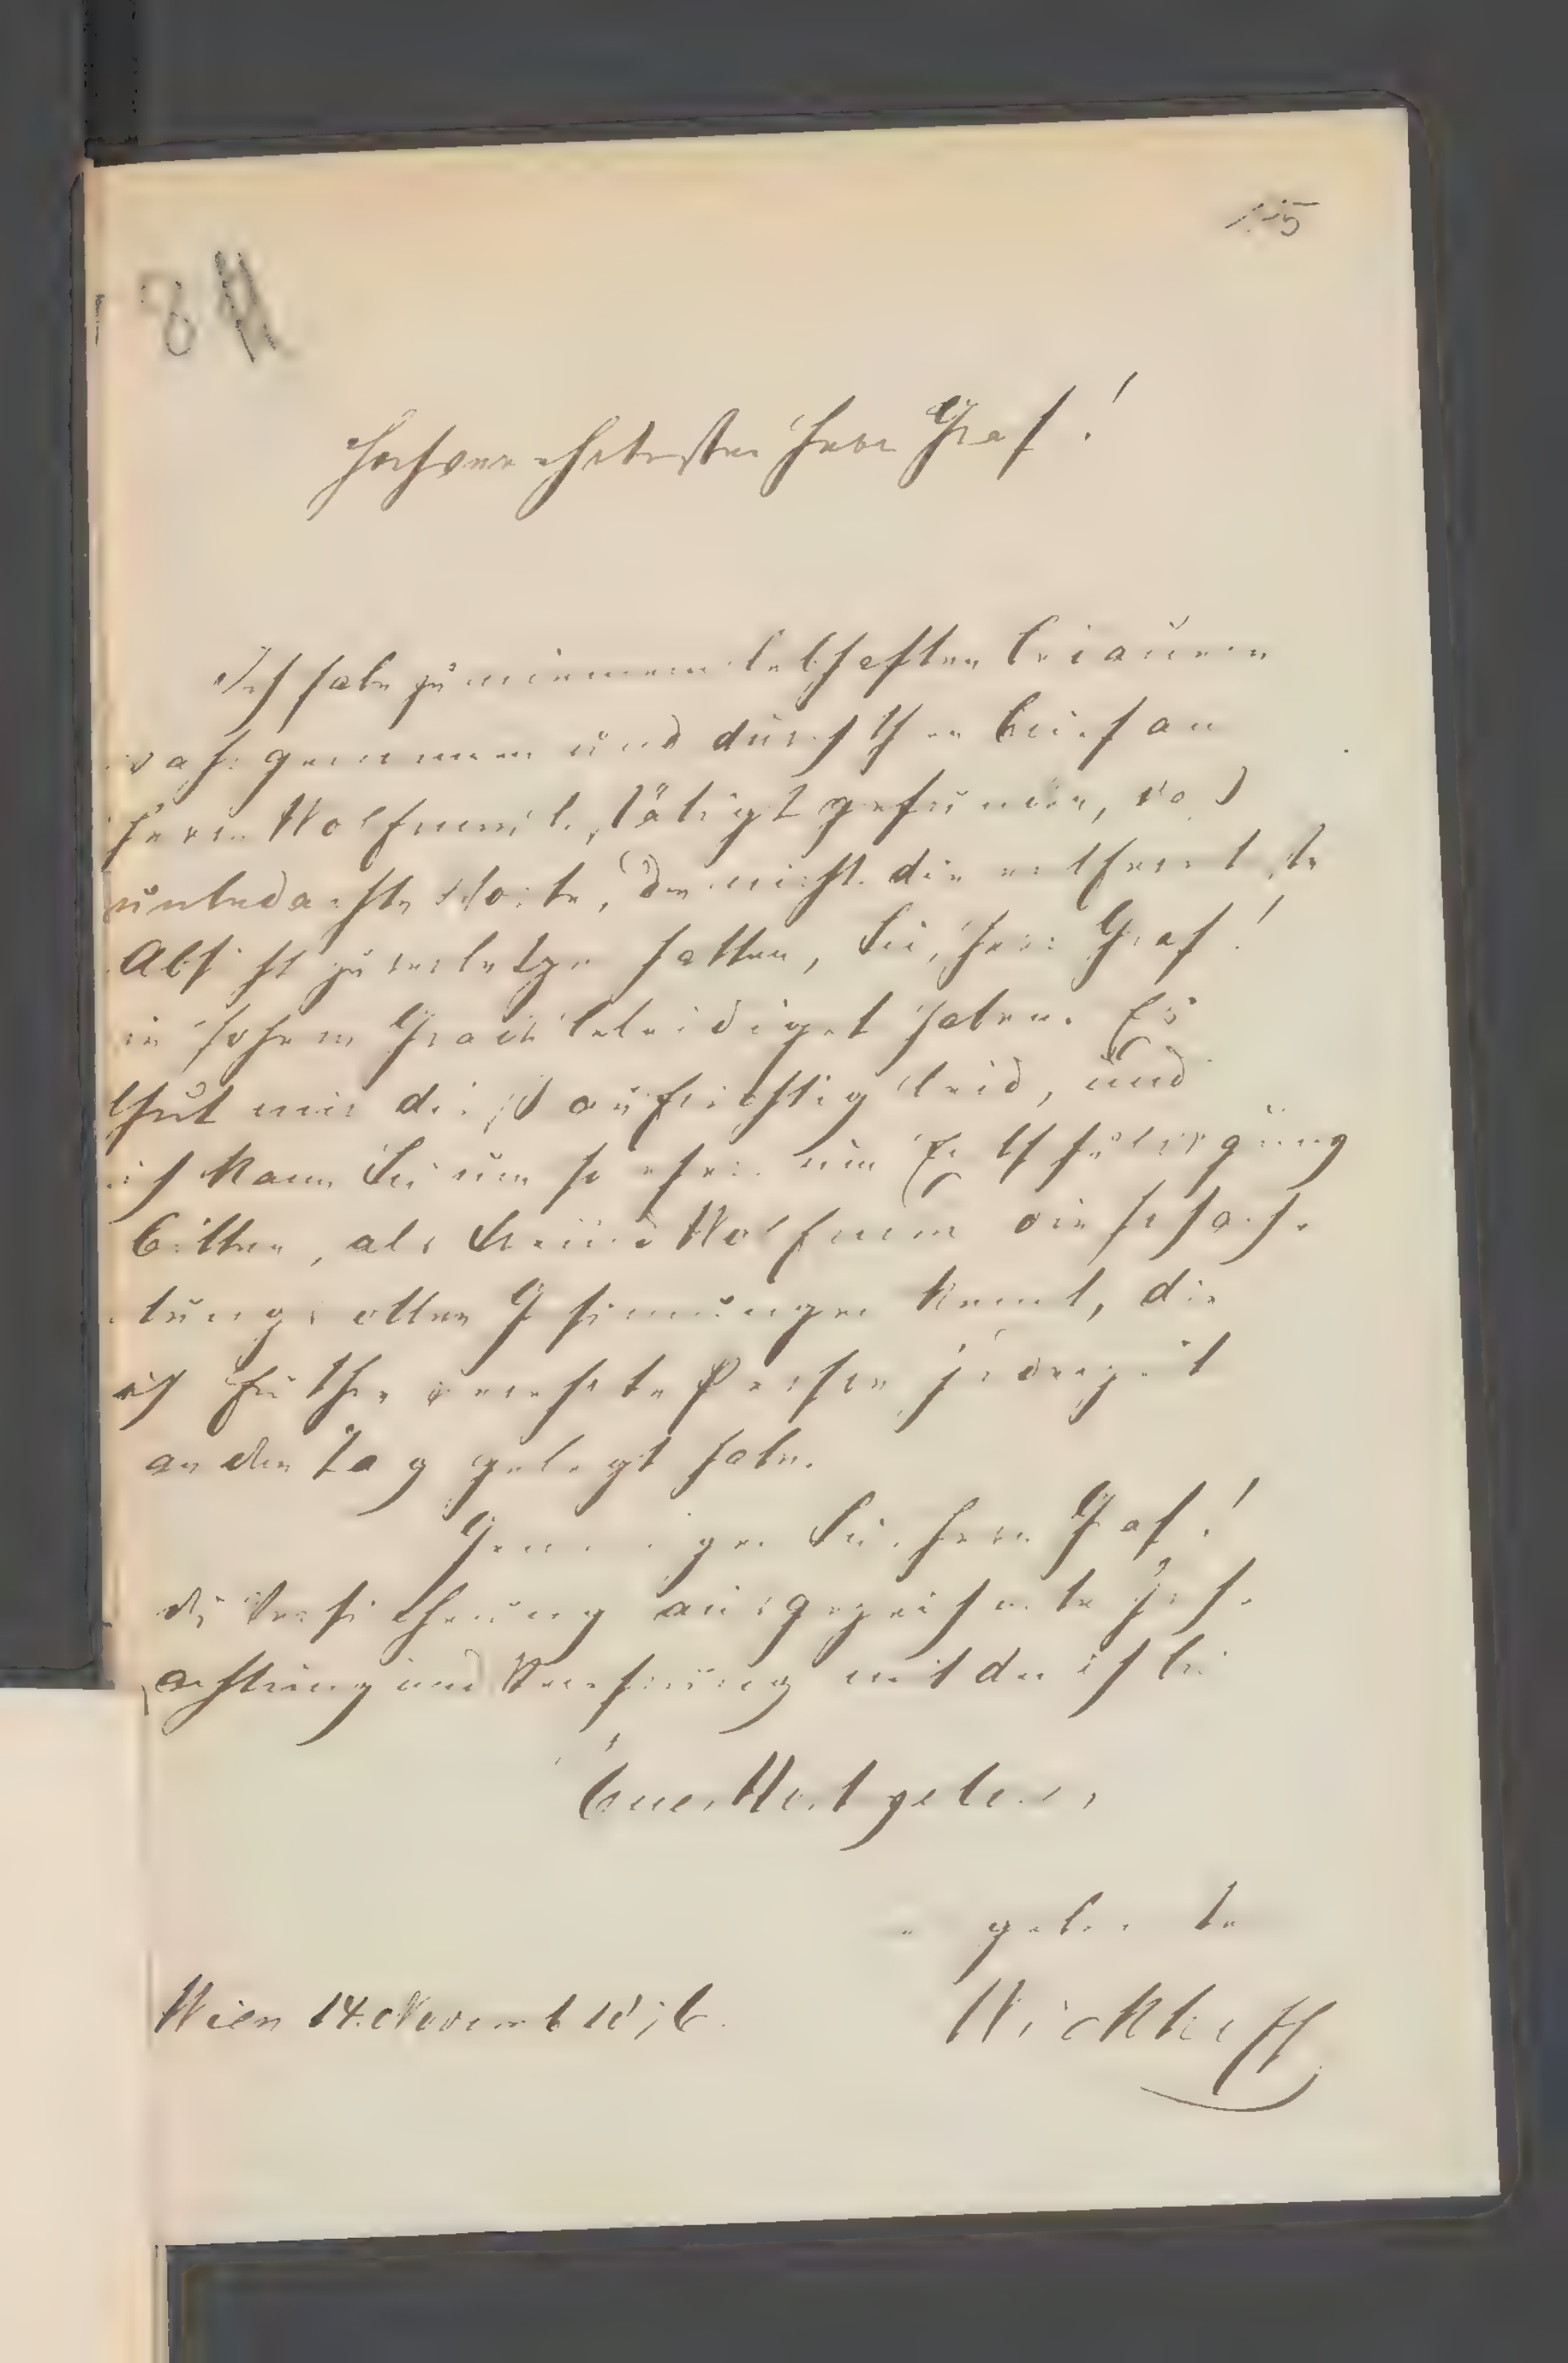 Hochverehrtester Herr Graf!
Ich habe zu meinem lebhaften Bedauern
wahrgenommen und durch Ihren Brief an
Herrn Wolfrum bestätigt gefunden, daß
unbedachte Worte, die nicht die entfernteste
Absicht zu verletzen hatten, Sie, Herr Graf!
in hohem Grade beleidiget haben. Es
thut mir dieß aufrichtig leid, und
ich kann Sie um so eher um Entschuldigung
bitten, als Freund Wolfrum die hochach-
tungsvollen Gesinnungen kennt, die
ich für Ihre verehrte Person jederzeit
an den Tag gelegt habe.
Genehmigen Sie, Herr Graf!
die Versicherung ausgezeichneter Hoch-
achtung und Verehrung mit der ich bin
Euer Hochgeboren
ergebenster
Wien 14. November
Wickhoff